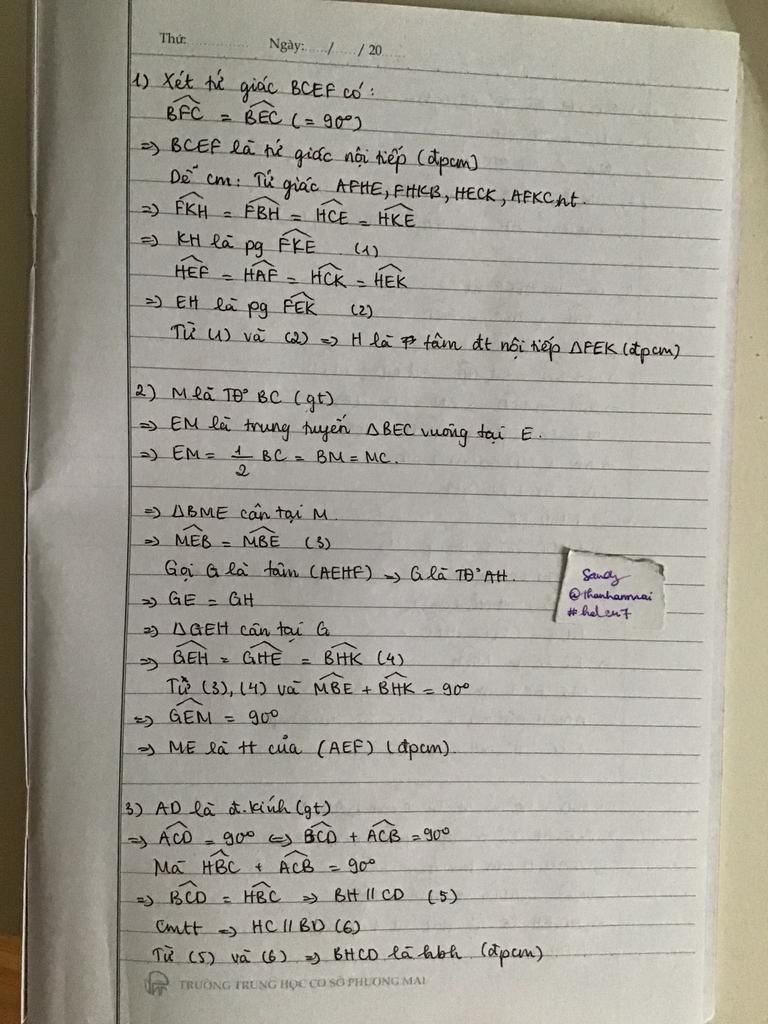 Thứ: ............ Ngày: ...../...../ 20 .....
1) Xét tứ giác BCEF có:
BFC = BEC (= 90°)
=> BCEF là tứ giác nội tiếp (đpcm)
Dễ cm: Tứ giác AFHE, FHKB, HECK, AFKC nt.
=> FKH = FBH = HCE = HKE
=> KH là pg FKE (1)
HEF = HAF = HCK = HEK
=> EH là pg FEK (2)
Từ (1) và (2) => H là tâm đt nội tiếp ΔFEK (đpcm)
2) M là TĐ° BC (gt)
=> EM là trung tuyến ΔBEC vuông tại E.
=> EM = 1/2 BC = BM = MC.
=> ΔBME cân tại M
=> MEB = MBE (3)
Gọi G là tâm (AEHF) => G là TĐ° AH.
Sandy
@thanhanmai
=> GE = GH
=> ΔGEH cân tại G
=> GEH = GHE = BHK (4)
Từ (3), (4) và MBE + BHK = 90°
=> GEM = 90°
=> ME là tt của (AEF) (đpcm).
3) AD là đ.kính (gt)
=> ACD = 90° <=> BCD + ACB = 90°
Mà HBC + ACB = 90°
=> BCD = HBC => BH // CD (5)
Cmtt => HC // BD (6)
Từ (5) và (6) => BHCD là hbh (đpcm)
TRƯỜNG TRUNG HỌC CƠ SỞ PHƯƠNG MAI